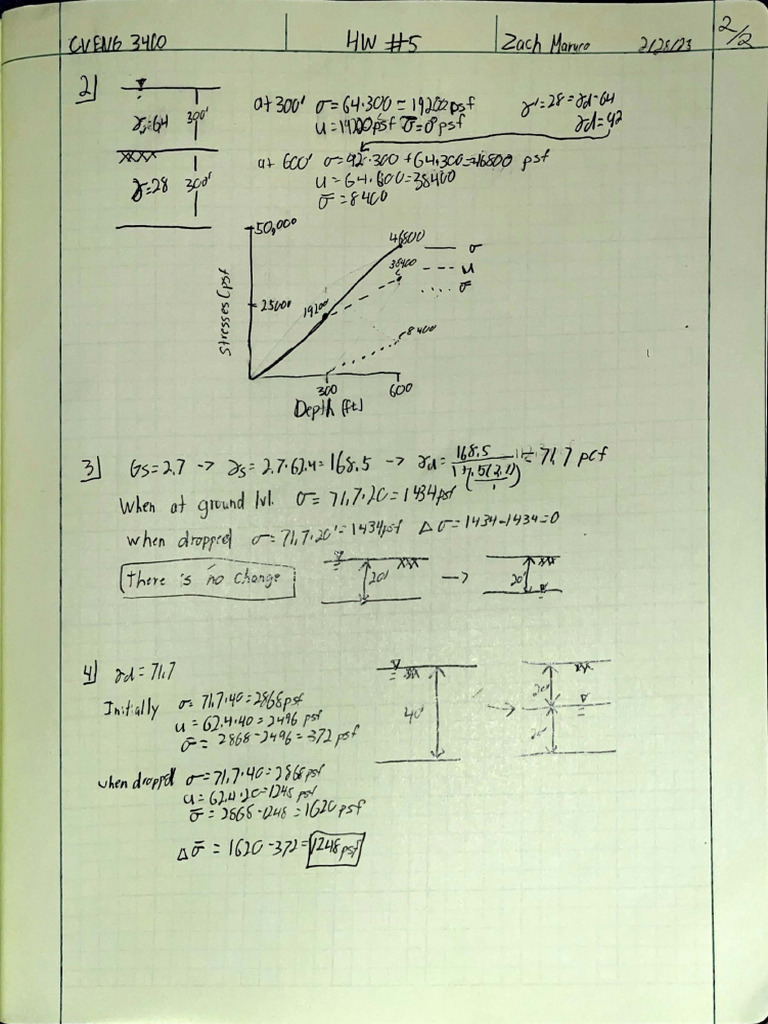 CVENG 3400 HW #5 Zach 2/28/23 2/2
2)
at 300' σ = 64·300 = 19200 psf γ' = 28 = γd - 64
γ = 64 300' u = 19200 psf σ̄ = 0 psf γd = 92
at 600' σ = 92·300 + 64·300 = 46800 psf
γ = 28 300' u = 64·600 = 38400
σ̄ = 8400
50,000
46800 σ
38400 u
σ̄
25000
19200
8400
Stresses (psf
300 600
Depth (ft)
3) Gs = 2.7 -> γs = 2.7·62.4 = 168.5 -> γd = 168.5 = 71.7 pcf
When at ground lvl. σ = 71.7·20 = 1434 psf
when dropped σ = 71.7·20' = 1434 psf Δσ = 1434-1434 = 0
There is no change 20' -> 20'
4) γd = 71.7
Initially σ = 71.7·40 = 2868 psf
u = 62.4·40 = 2496 psf
σ̄ = 2868-2496 = 372 psf
40' -> 20'
20'
when dropped σ = 71.7·40 = 2868 psf
u = 62.4·20 = 1248 psf
σ̄ = 2868-1248 = 1620 psf
Δσ̄ = 1620-372 = 1248 psf